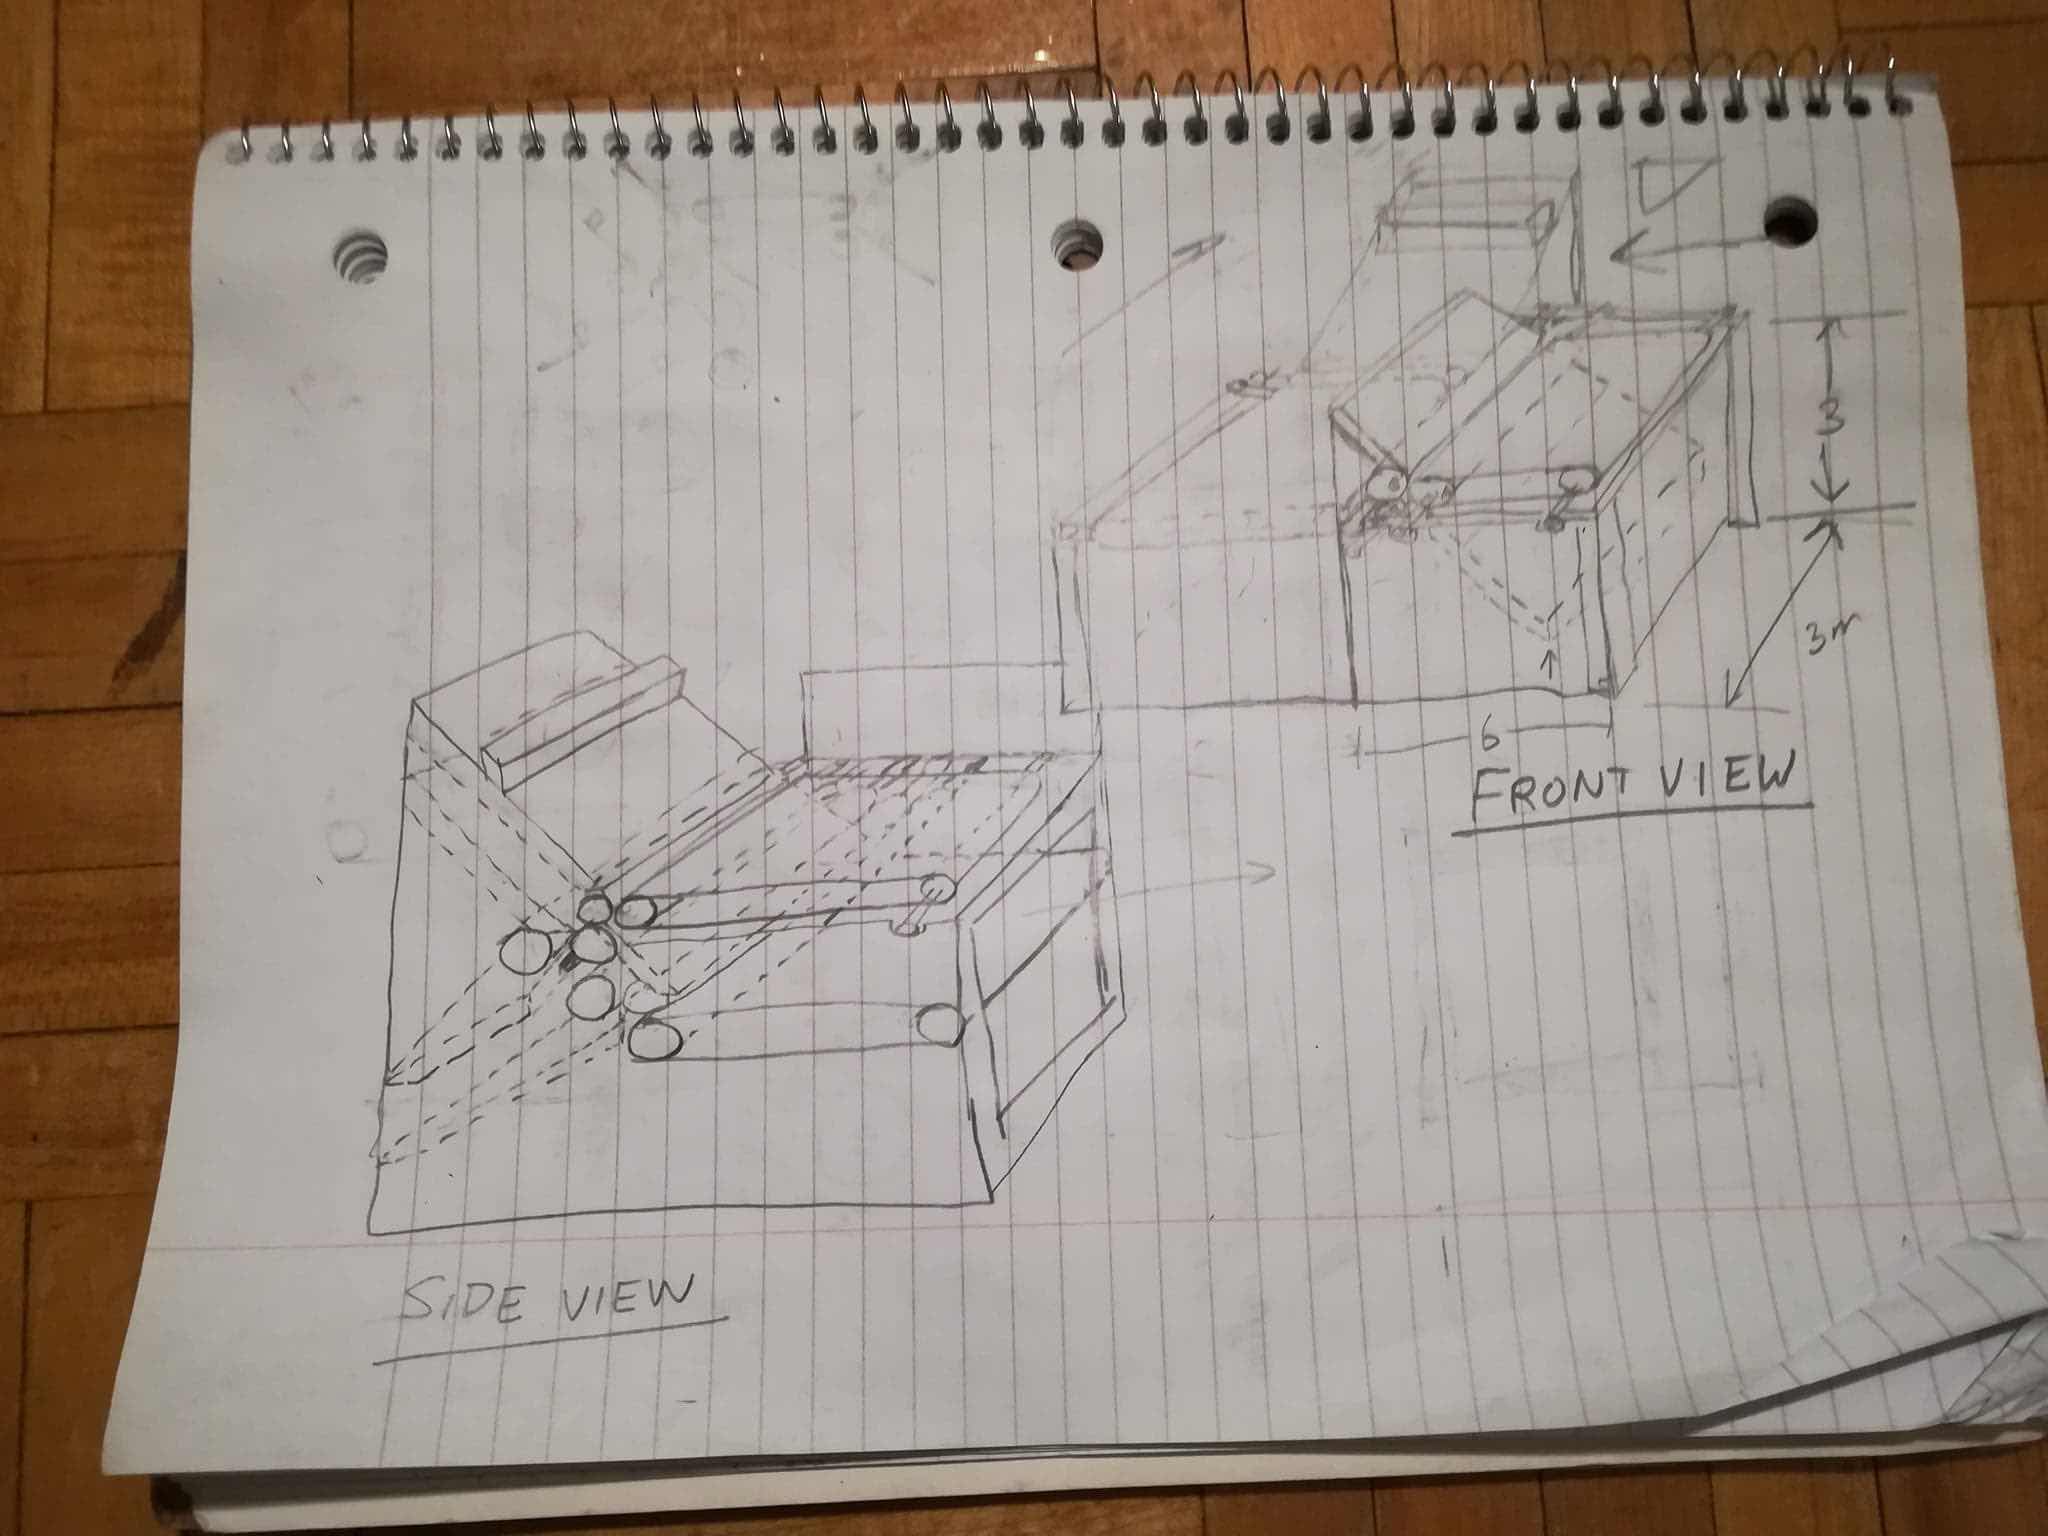 3
3m
6
FRONT VIEW
SIDE VIEW